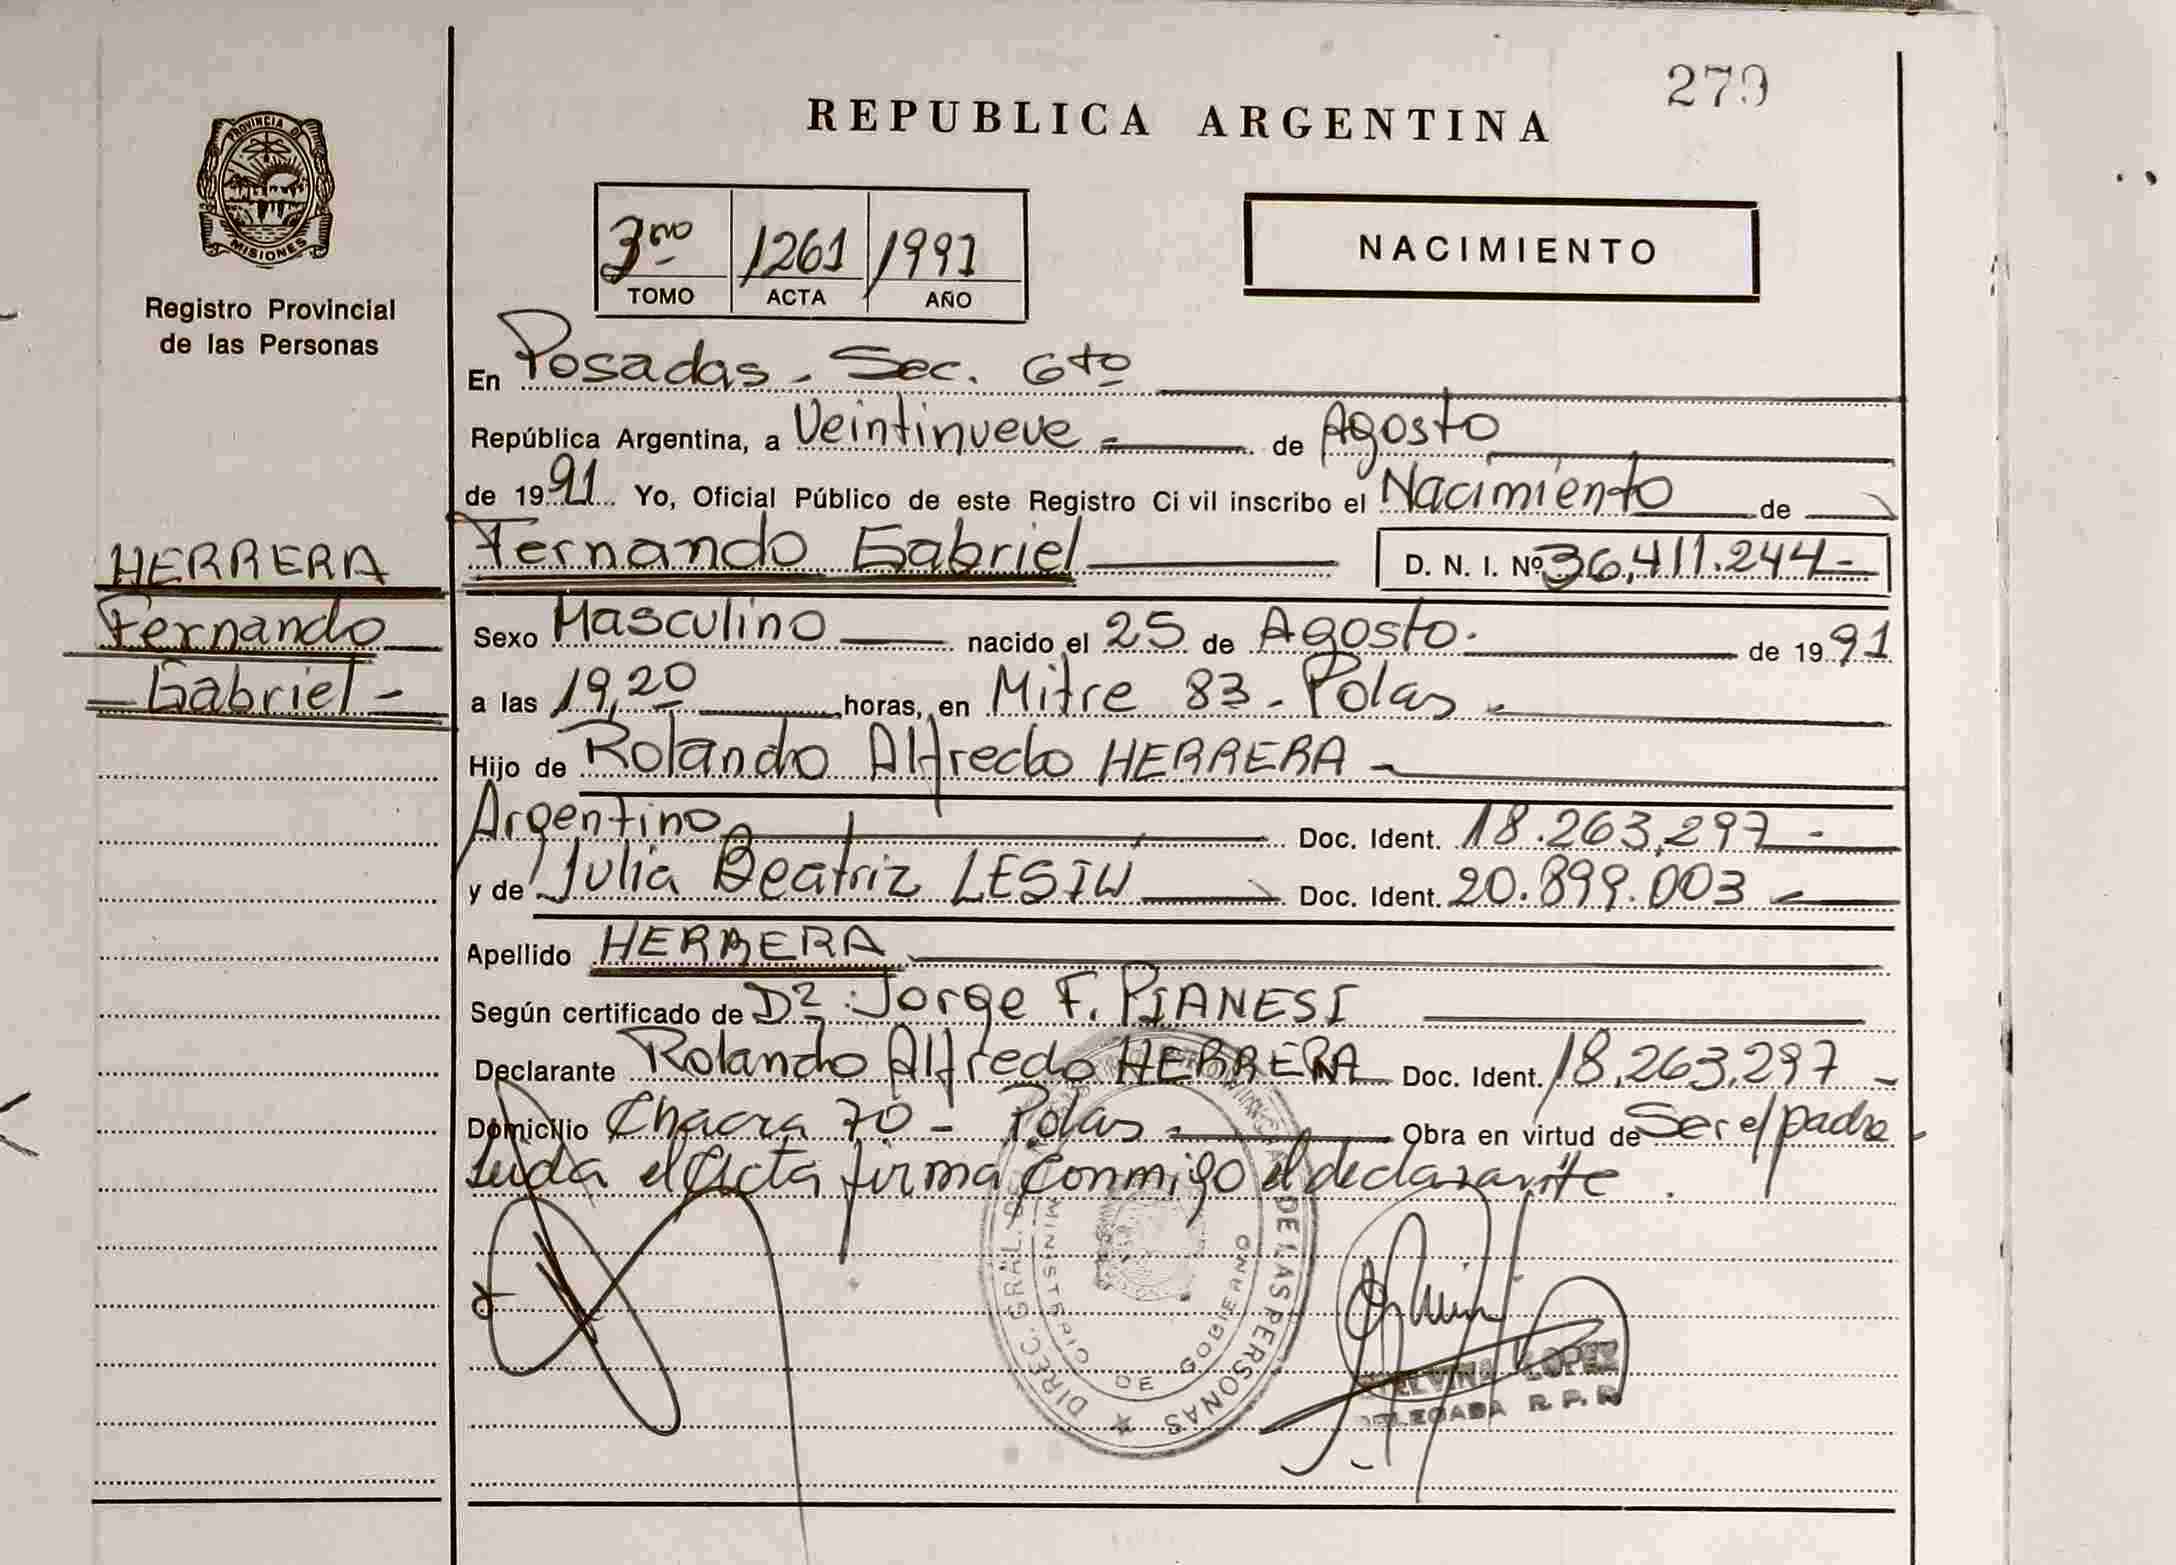 279
REPUBLICA ARGENTINA
PROVINCIA DE
MISIONES
Registro Provincial
de las Personas
3ro 1261 1991
TOMO ACTA AÑO
NACIMIENTO
En Posadas - Sec. 6to
República Argentina, a Veintinueve de Agosto
de 1991 Yo, Oficial Público de este Registro Civil inscribo el Nacimiento de
HERRERA
Fernando
Gabriel -
Fernando Gabriel D. N. I. Nº 36,411.244 -
Sexo Masculino nacido el 25 de Agosto. de 1991
a las 19,20 horas, en Mitre 83 - Pdas -
Hijo de Rolando Alfredo HERRERA -
Argentino Doc. Ident. 18.263,297 -
y de Julia Beatriz LESIW Doc. Ident. 20.899.003 -
Apellido HERRERA
Según certificado de Dr: Jorge F. PIANESI
Declarante Rolando Alfredo HERRERA Doc. Ident. 18,263,297 -
Domicilio Chacra 70 - Pdas - Obra en virtud de Ser el padre
Leida el Acta firma conmigo el declarante.
DIREC. GRAL. DE LAS PERSONAS
MINISTERIO DE GOBIERNO
LOPEZ
DELEGADA R. P. P.